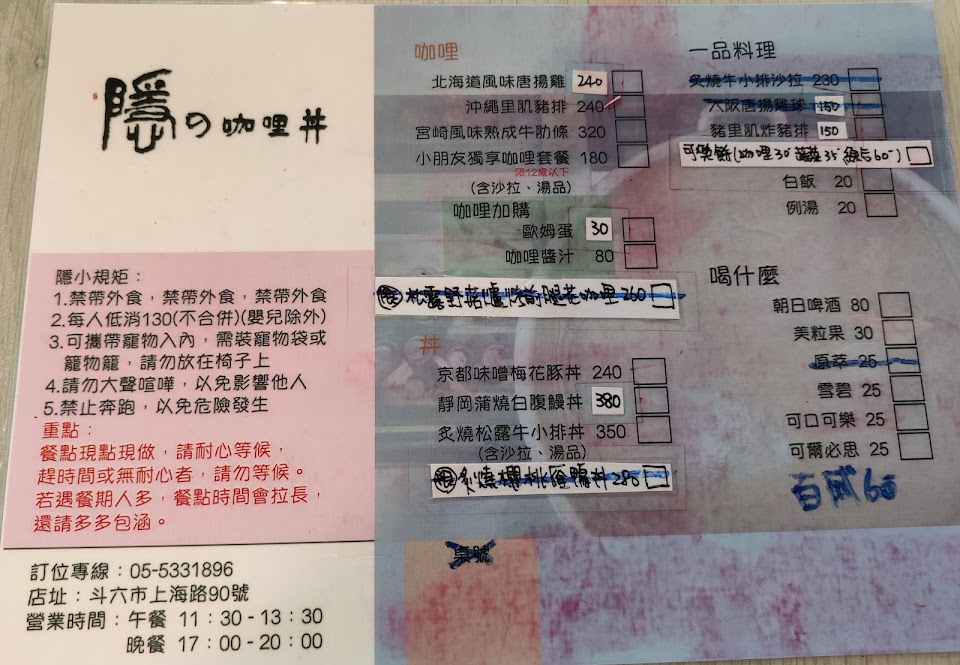 隱の咖哩丼
隱小規矩：
1.禁帶外食，禁帶外食，禁帶外食
2.每人低消130(不合併)(嬰兒除外)
3.可攜帶寵物入內，需裝寵物袋或
寵物籠，請勿放在椅子上
4.請勿大聲喧嘩，以免影響他人
5.禁止奔跑，以免危險發生
重點：
餐點現點現做，請耐心等候，
趕時間或無耐心者，請勿等候。
若遇餐期人多，餐點時間會拉長，
還請多多包涵。
訂位專線：05-5331896
店址：斗六市上海路90號
營業時間：午餐 11：30-13：30
晚餐 17：00-20：00
咖哩
北海道風味唐揚雞 240
沖繩里肌豬排 240
宮崎風味熟成牛肋條 320
小朋友獨享咖哩套餐 180
限12歲以下
(含沙拉、湯品)
咖哩加購
歐姆蛋 30
咖哩醬汁 80
松露野菇爐烤前腿花咖哩 260
丼
京都味噌梅花豚丼 240
靜岡蒲燒白腹鰻丼 380
炙燒松露牛小排丼 350
(含沙拉、湯品)
炙燒櫻桃鴨丼 280
桌號
一品料理
炙燒牛小排沙拉 230
大阪唐揚雞球 150
豬里肌炸豬排 150
可樂餅(咖哩30 蔬菜35 60)
白飯 20
例湯 20
喝什麼
朝日啤酒 80
美粒果 30
原萃 25
雪碧 25
可口可樂 25
可爾必思 25
百威60